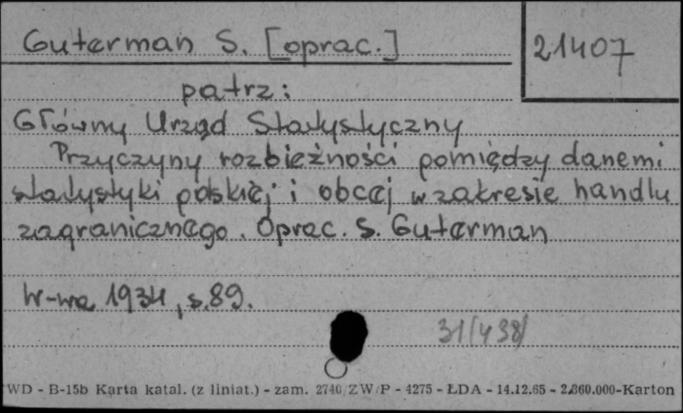 Guterman S. [oprac.]
21407
patrz:
Główny Urząd Statystyczny
Przyczyny rozbieżności pomiędzy danemi
statystyki polskiej i obcej w zakresie handlu
zagranicznego. Oprac. S. Guterman
W-wa 1934, s. 89.
31/438/
WD - B-15b Karta katal. (z liniat.) - zam. 2740/ZW/P - 4275 - ŁDA - 14.12.65 - 2.860.000-Karton